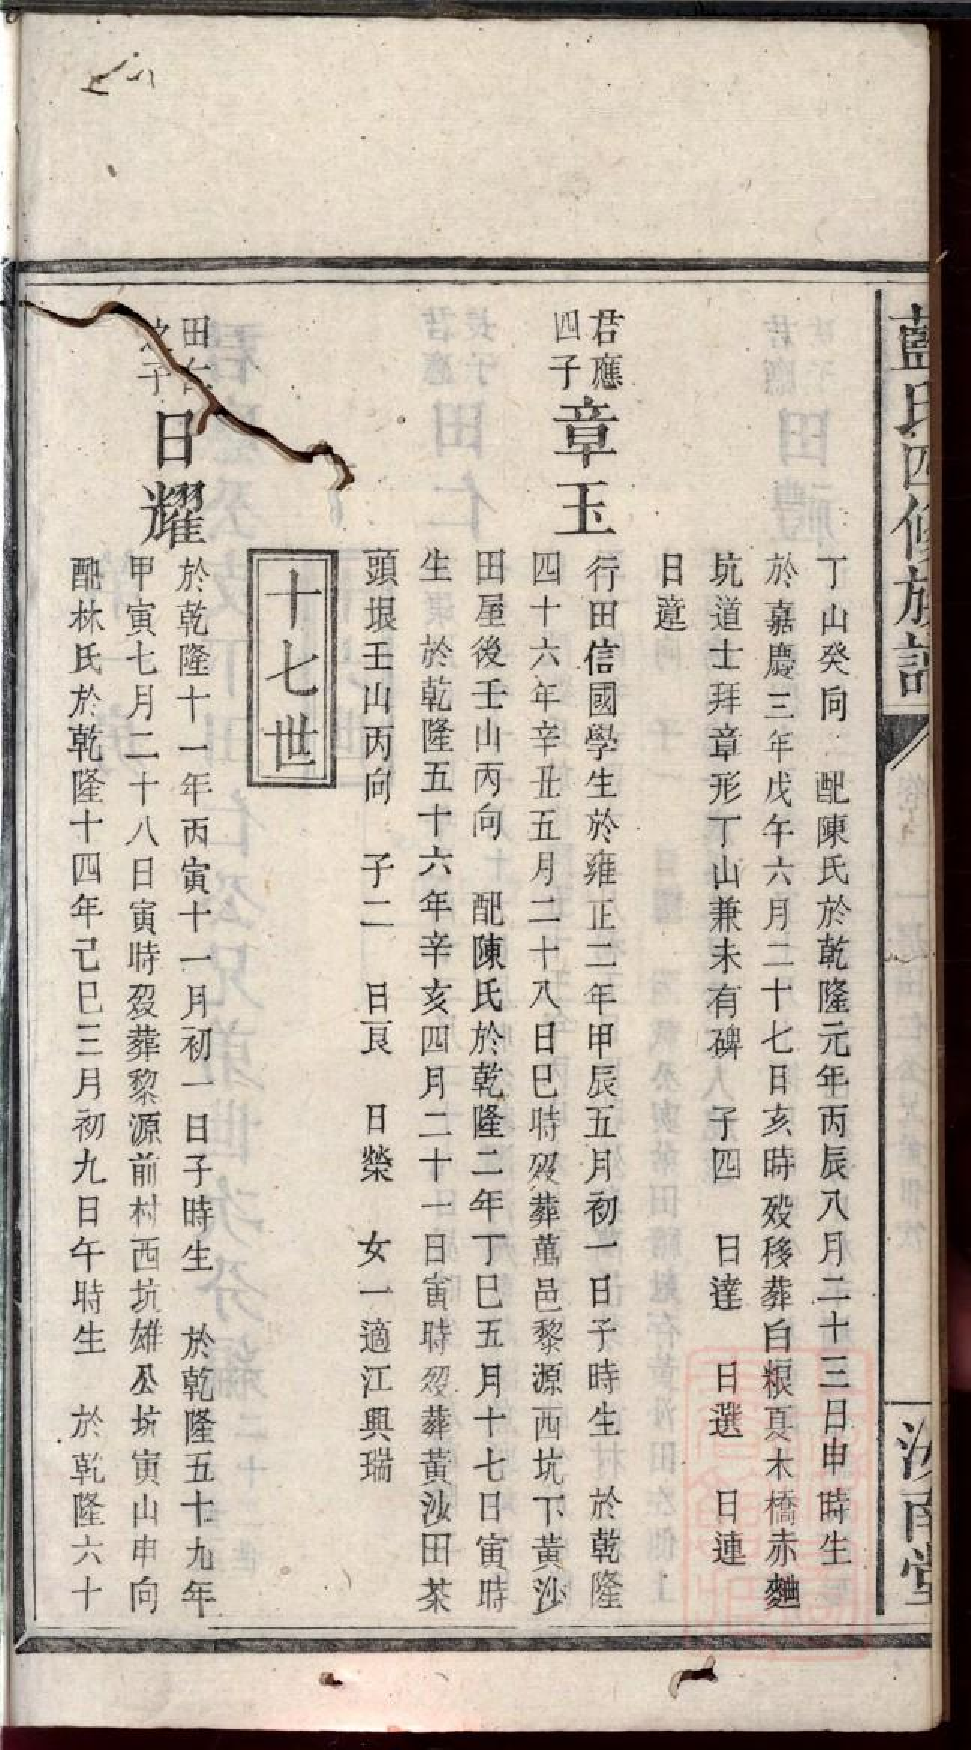 藍氏四修族譜
汝南堂
丁山癸向 配陳氏於乾隆元年丙辰八月二十三日申時生
於嘉慶三年戊午六月二十七日亥時歿移葬白粮真木橋赤麯
坑道士拜章形丁山兼未有碑 子四 日達 日選 日連
日蓬
君應
四子
章玉
行田信國學生於雍正二年甲辰五月初一日子時生 於乾隆
四十六年辛丑五月二十八日巳時歿葬萬邑黎源西坑下黃沙
田屋後壬山丙向 配陳氏於乾隆二年丁巳五月十七日寅時
生 於乾隆五十六年辛亥四月二十一日寅時歿葬黃沙田茶
頭垠壬山丙向 子二 日良 日榮 女一適江興瑞
十七世
田仁
之子
日耀
於乾隆十一年丙寅十一月初一日子時生 於乾隆五十九年
甲寅七月二十八日寅時歿葬黎源前村西坑雄公坑寅山申向
配林氏於乾隆十四年己巳三月初九日午時生 於乾隆六十